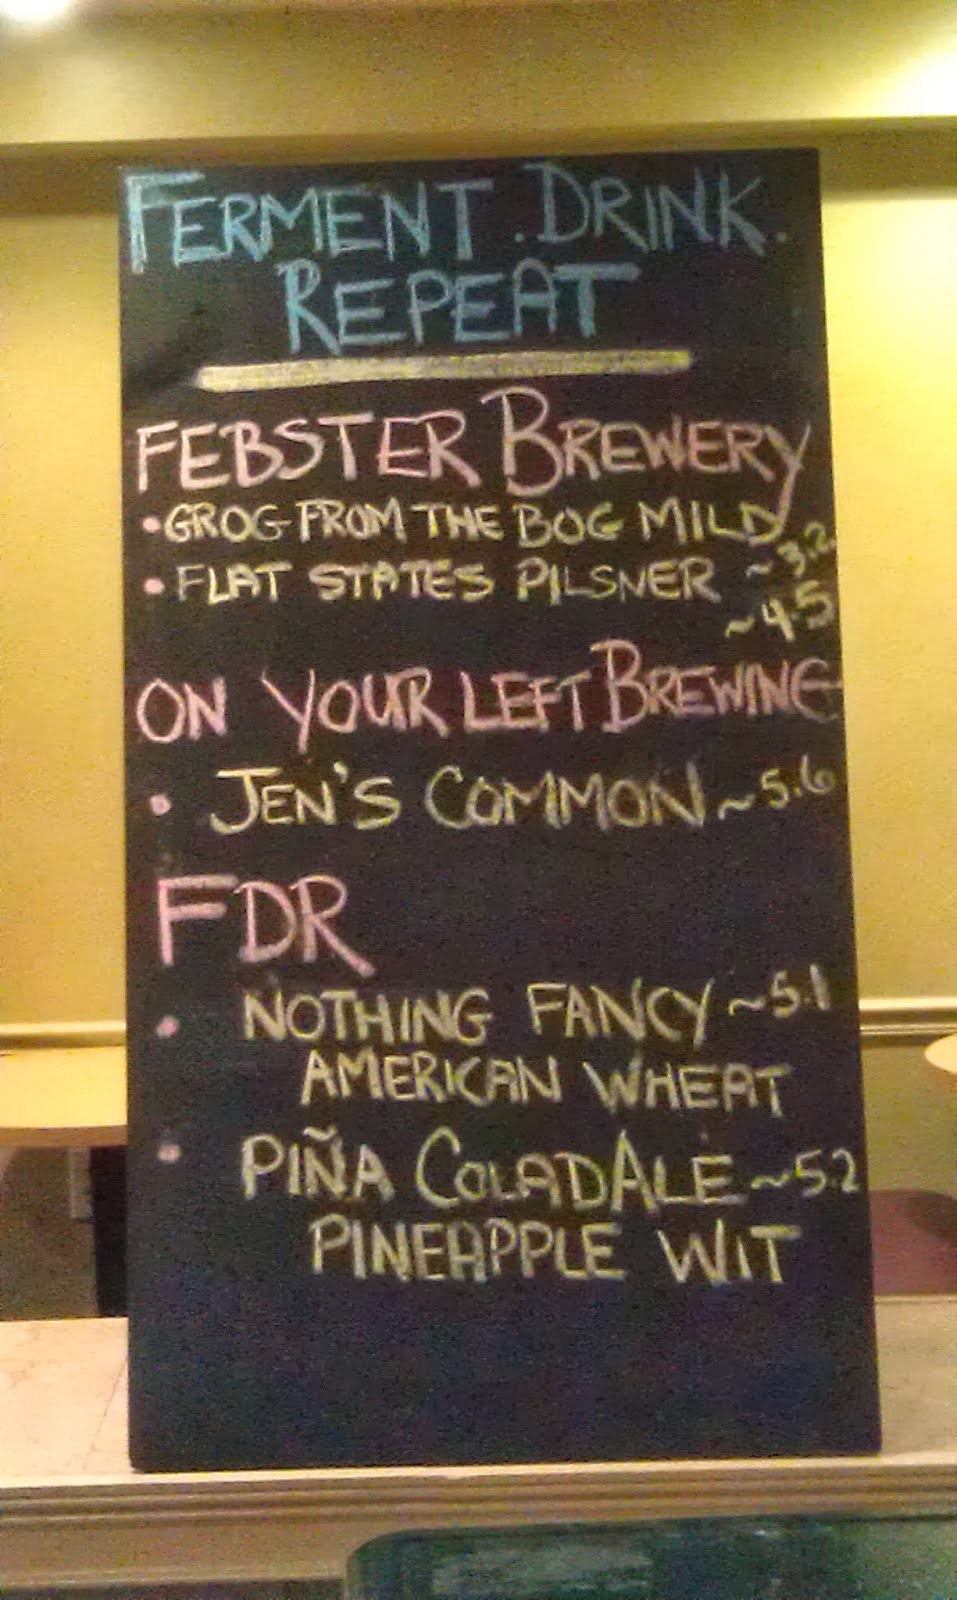 FERMENT. DRINK.
REPEAT
FEBSTER BREWERY
• GROG FROM THE BOG MILD ~3.2
• FLAT STATES PILSNER ~4.5
ON YOUR LEFT BREWING
• JEN'S COMMON ~5.6
FDR
• NOTHING FANCY ~5.1
AMERICAN WHEAT
• PIÑA COLADALE ~5.2
PINEAPPLE WIT